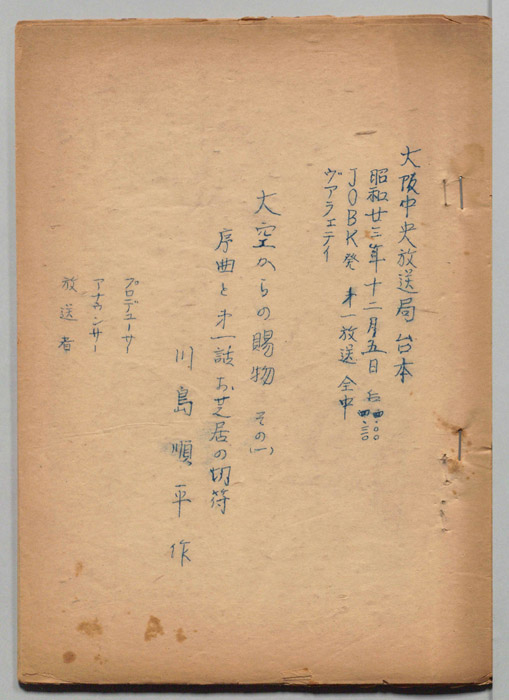 大阪中央放送局台本
昭和廿三年十二月五日 后 四.〇〇
四.三〇
JOBK発 才一放送 全中
ヴアラエテイ
大空からの賜物 その(一)
序曲と才一話 お芝居の切符
川島順平作
プロデューサー
アナウンサー
放送者